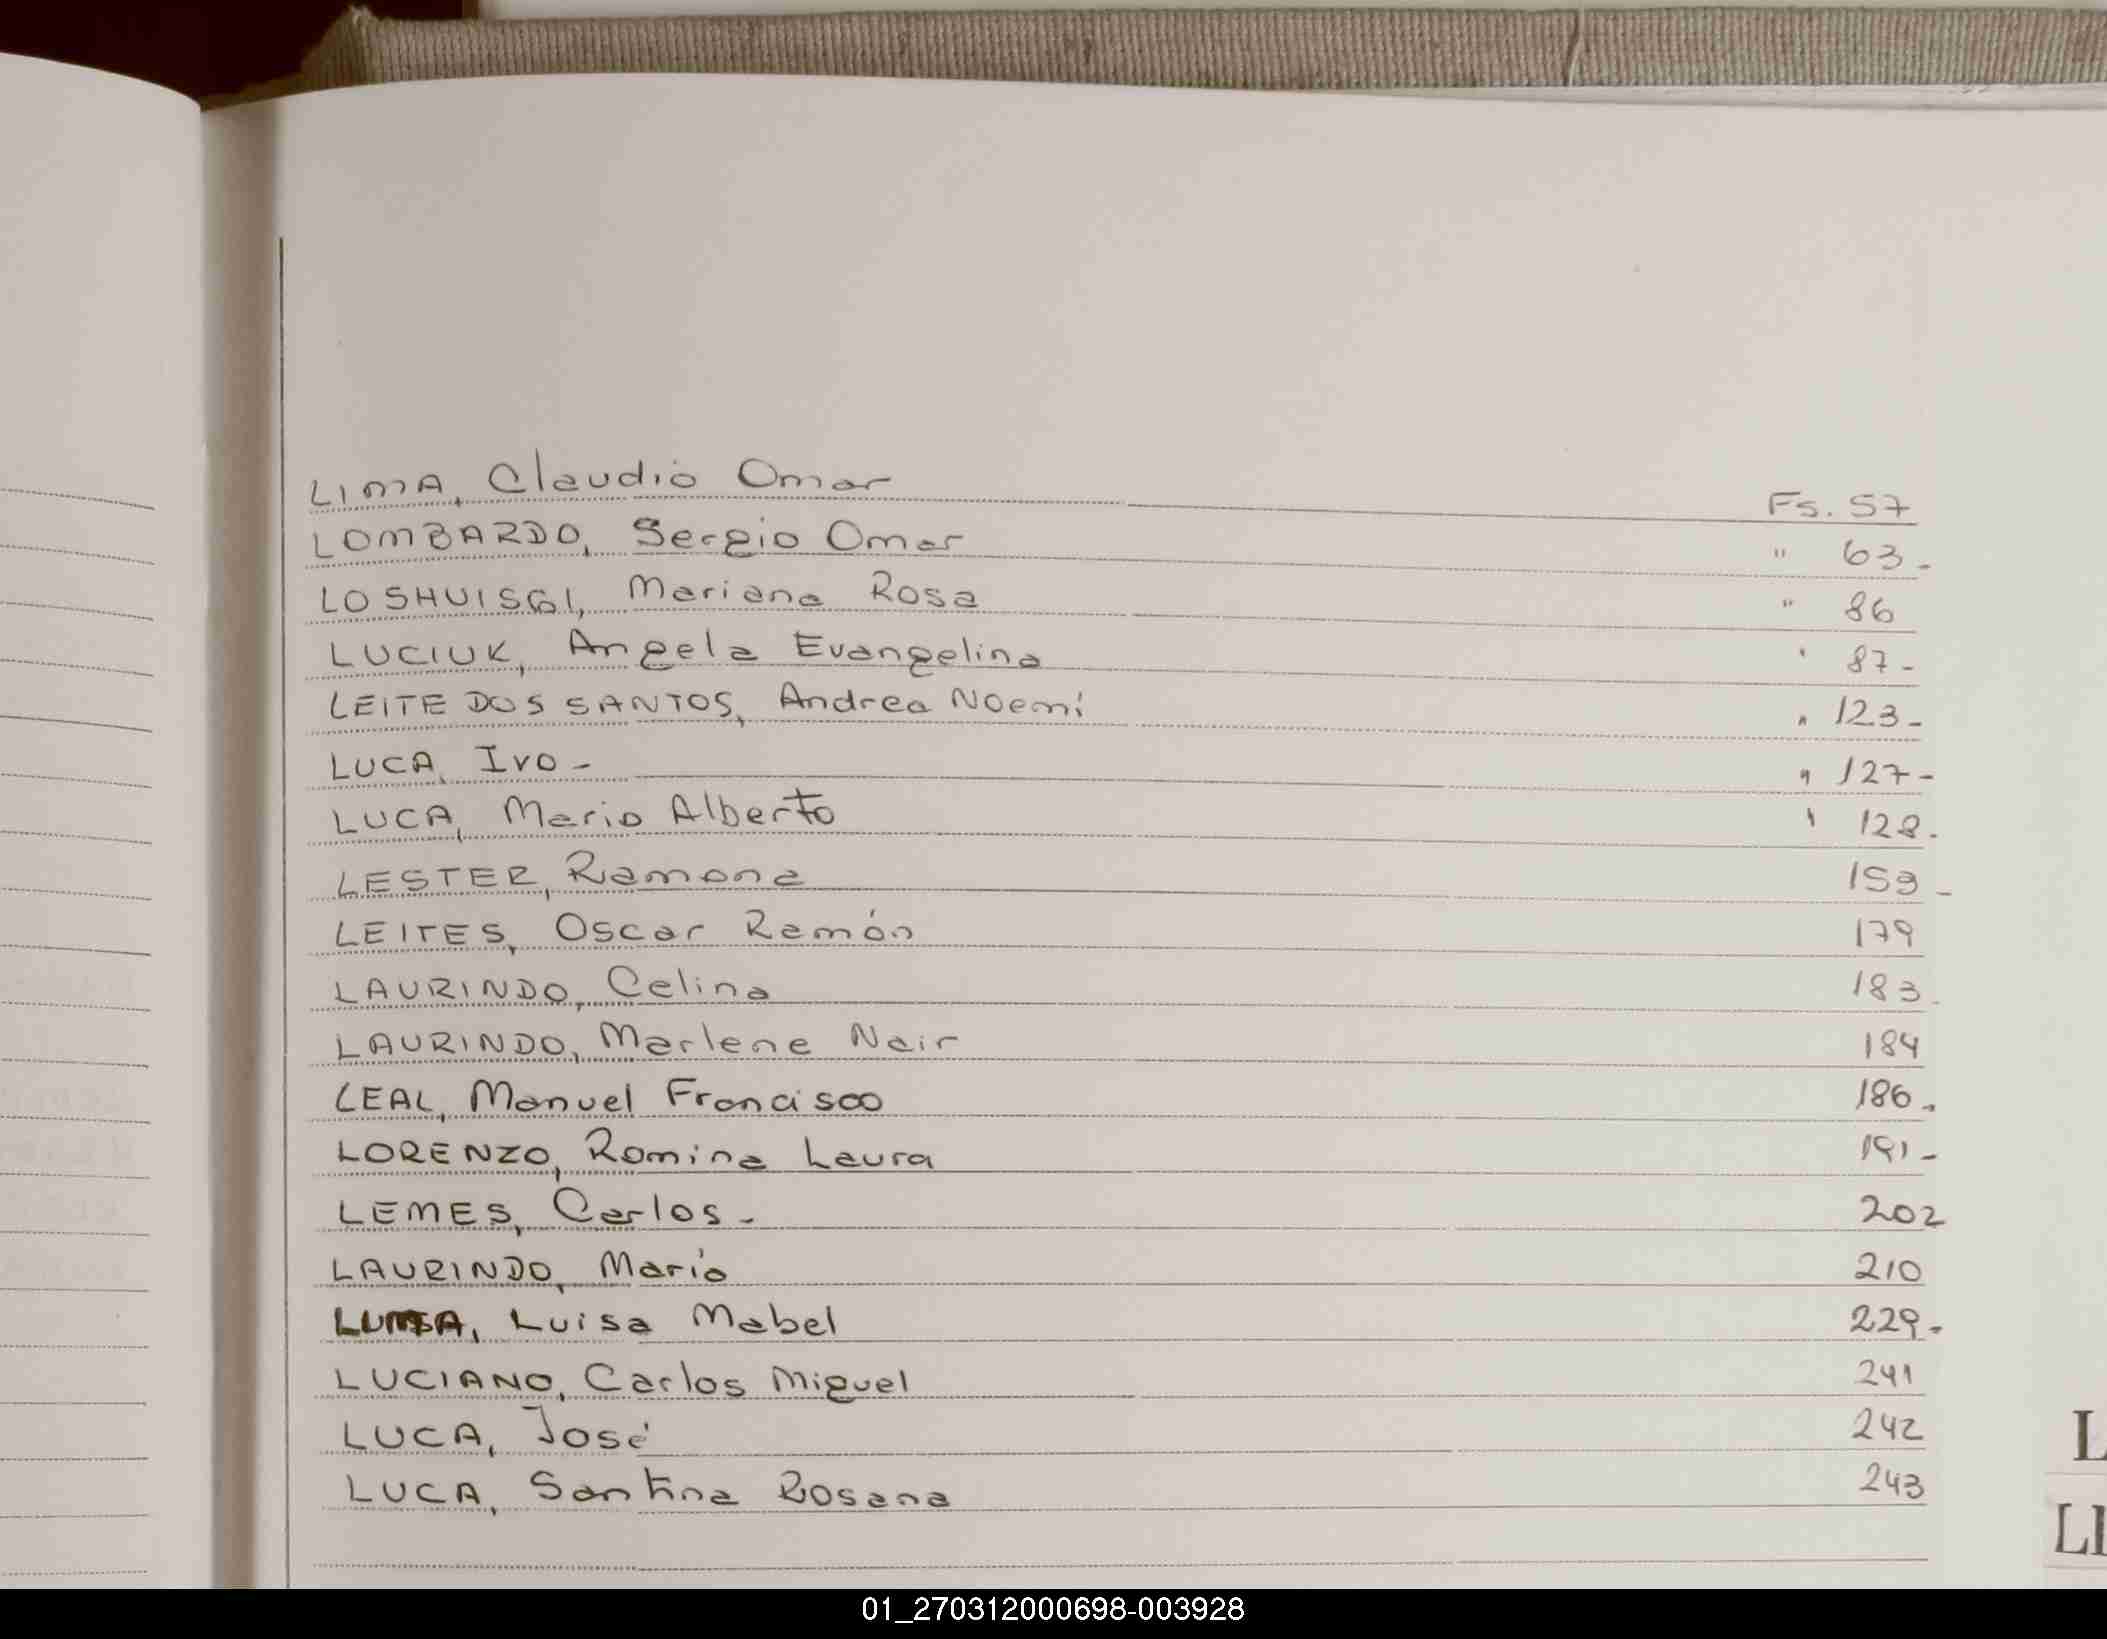 LIMA, Claudio Omar Fs. 57
LOMBARDO, Sergio Omar " 63-
Mariana Rosa " 86
LUCIUK, Angela Evangelina " 87-
LEITE DOS SANTOS, Andrea Noemí " 123-
LUCA, Ivo - " 127-
LUCA, Mario Alberto " 128.
LESTER, Ramona 159-
LEITES, Oscar Ramón 179
LAURINDO, Celina 183.
LAURINDO, Marlene Nair 184
LEAL, Manuel Francisco 186.
LORENZO, Romina Laura 191-
LEMES, Carlos- 202
LAURINDO, Mario 210
Luisa Mabel 229-
LUCIANO, Carlos Miguel 241
LUCA, José 242
LUCA, Santina Rosana 243
L
Ll
01_270312000698-003928